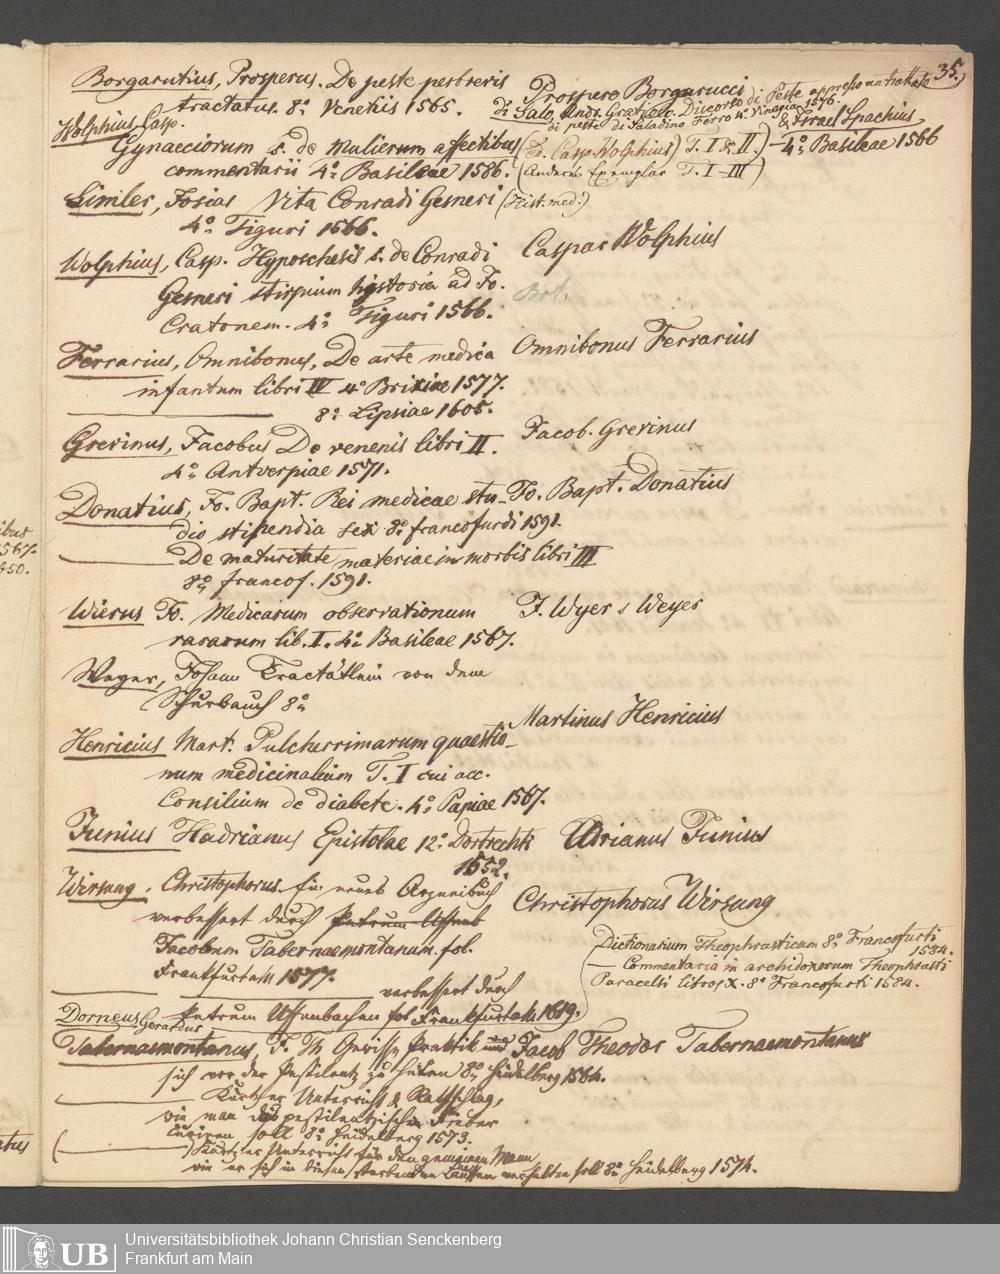 35.)
Borgarutius, Prosperus. De peste perbrevis
tractatus. 8o Venetiis 1565.
Prospero Borgarucci
di Salo, Andr. Gratiolo. Discorso di Peste appresso un trattato
di peste di Saladino Ferro 4o Vinegia 1576.
Wolphius, Casp. & Israel Spachius
Gynaeciorum s. de Mulierum affectibus (Ed. Casp. Wolphius) T. I & II.) — 4o Basileae 1566
commentarii 4o Basileae 1586. (Anderes Exemplar T. I–III)
Simler, Josias Vita Conradi Gesneri (Hist. med.)
4o Tiguri 1566.
Wolphius, Casp. Hyposchesis s. de Conradi
Caspar Wolphius
Gesneri stirpium historia ad Jo.
Bot.
Cratonem. 4o Tiguri 1566.
Ferrarius, Omnibonus, De arte medica
Omnibonus Ferrarius
infantum libri IV 4o Brixiae 1577.
8o Lipsiae 1605.
Grevinus, Jacobus De venenis libri II.
Jacob. Grevinus
4o Antverpiae 1571.
Donatius, Jo. Bapt. Rei medicae stu-
Jo. Bapt. Donatius
dio stipendia sex 8o francofurdi 1591.
De maturitate materiae in morbis libri III
8o francof. 1591.
Wierus Jo. Medicarum observationum
J. Wyer s Weyer
rararum lib. I. 4o Basileae 1567.
Weyer, Johann Tractätlein von dem
Schurbauch 8o
Martinus Henricius
Henricius Mart. Pulcherrimarum quaestio-
num medicinalium T. I cui acc.
Consilium de diabete. 4o Papiae 1567.
Junius Hadrianus Epistolae 12o Dortrechti
Adrianus Junius
1652.
Wirsung. Christophorus. Ein neues Arzneibuch
Christophorus Wirsung
verbessert durch Petrum Uffenb
Jacobum Tabernaemontanum. fol.
Frankfurtam 1577.
verbessert durch
Petrum Uffenbachen fol Frankfurtam 1619.
Dorneus Gerardus
Dictionarium Theophrasticum 8o Francofurti
1584.
— Commentaria in archidoxorum Theophrasti
Paracelsi libros X. 8o Francofurti 1584.
Tabernaemontanus, J. Th Gewisse Praktik und
Jacob Theodor Tabernaemontanus
sich vor der Pestilentz zu hüten 8o Heidelberg 1564.
Kurtzer Unterricht & Rathschlag,
wie man das pestilentzische Fieber
curiren soll 8o Heidelberg 1573.
(Kurtzer Unterricht für den gemeinen Mann
wie er sich in diesen sterbenden Läuffen verhalten soll 8o Heidelberg 1574.
ibus
1567.
650.
atus
UB
Universitätsbibliothek Johann Christian Senckenberg
Frankfurt am Main